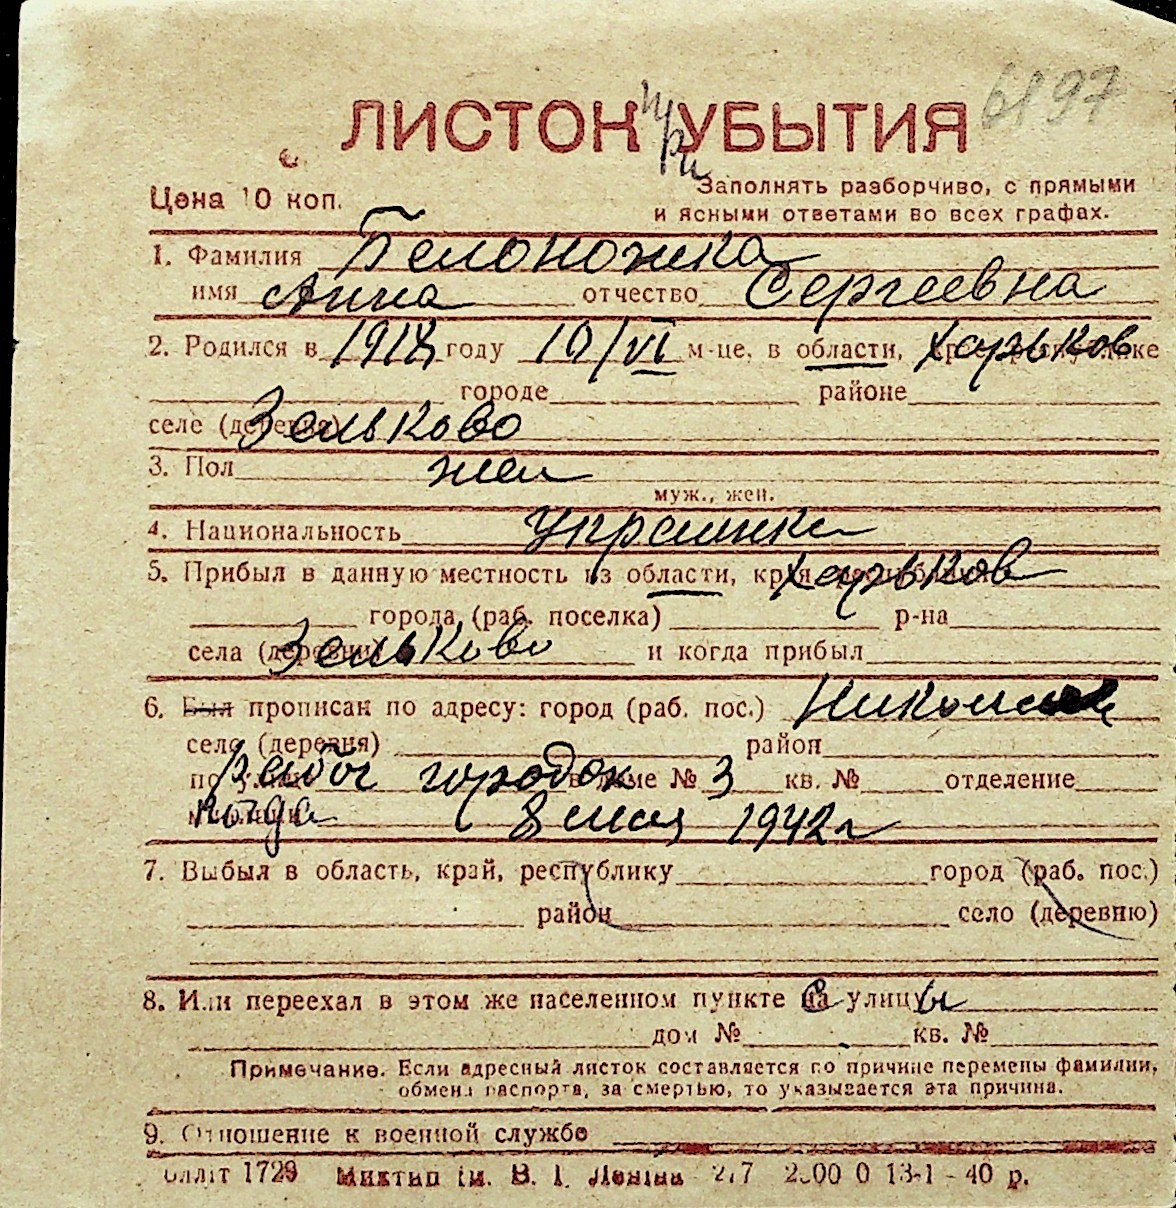 6197
ЛИСТОК при УБЫТИЯ
Цена 10 коп.
Заполнять разборчиво, с прямыми
и ясными ответами во всех графах.
1. Фамилия Белоножка
имя Анна отчество Сергеевна
2. Родился в 1918 году 10/VI м-це, в области, Харьков
городе районе
селе (деревне) Зеньково
3. Пол жен
муж., жен.
4. Национальность Украинка
5. Прибыл в данную местность из области, края Харьков
города (раб. поселка) р-на
села (деревни) Зеньково и когда прибыл
6. Был прописан по адресу: город (раб. пос.)
село (деревня) район
по улице Рыбы городок в доме № 3 кв. № отделение
милиции Когда 8 мая 1942 г
7. Выбыл в область, край, республику город (раб. пос.)
район село (деревню)
8. Или переехал в этом же населенном пункте с улицы
дом № кв. №
Примечание. Если адресный листок составляется по причине перемены фамилии,
обмена паспорта, за смертью, то указывается эта причина.
9. Отношение к военной службе
1729 Миктип ім. В. І. Леніна 13-1 - 40 р.